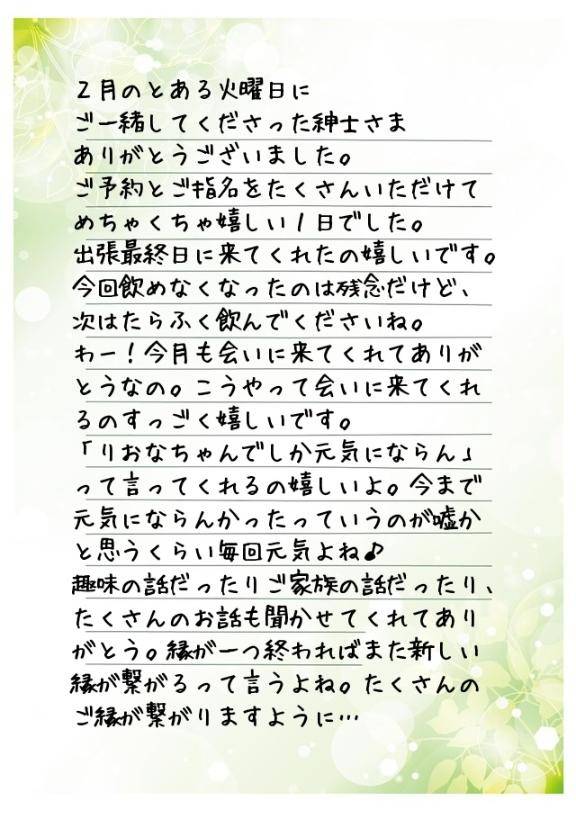 2月のとある火曜日に
ご一緒してくださった紳士さま
ありがとうございました。
ご予約とご指名をたくさんいただけて
めちゃくちゃ嬉しい1日でした。
出張最終日に来てくれたの嬉しいです。
今回飲めなくなったのは残念だけど、
次はたらふく飲んでくださいね。
わー！今月も会いに来てくれてありが
とうなの。こうやって会いに来てくれ
るのすっごく嬉しいです。
「りおなちゃんでしか元気にならん」
って言ってくれるの嬉しいよ。今まで
元気にならんかったっていうのが嘘か
と思うくらい毎回元気よね♪
趣味の話だったりご家族の話だったり、
たくさんのお話も聞かせてくれてあり
がとう。縁が一つ終わればまた新しい
縁が繋がるって言うよね。たくさんの
ご縁が繋がりますように…